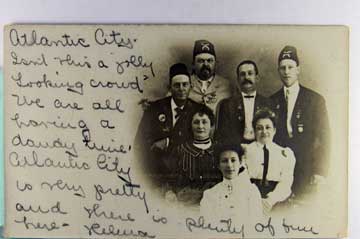 Atlantic City.
Isn't this a jolly
looking crowd?
We are all
having a
dandy time.
Atlantic City
is very pretty
and there is plenty of fun
here - Helena